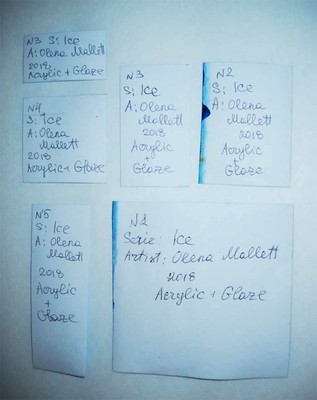 N3 S: Ice
A: Olena Mallett
2018
Acrylic + Glaze
N3
S: Ice
A: Olena
Mallett
2018
Acrylic
+
Glaze
N2
S: Ice
A: Olena
Mallett
2018
Acrylic
+
Glaze
N4
S: Ice
A: Olena
Mallett
2018
Acrylic + Glaze
N5
S: Ice
A: Olena
Mallett
2018
Acrylic
+
Glaze
N1
Serie: Ice
Artist: Olena Mallett
2018
Acrylic + Glaze